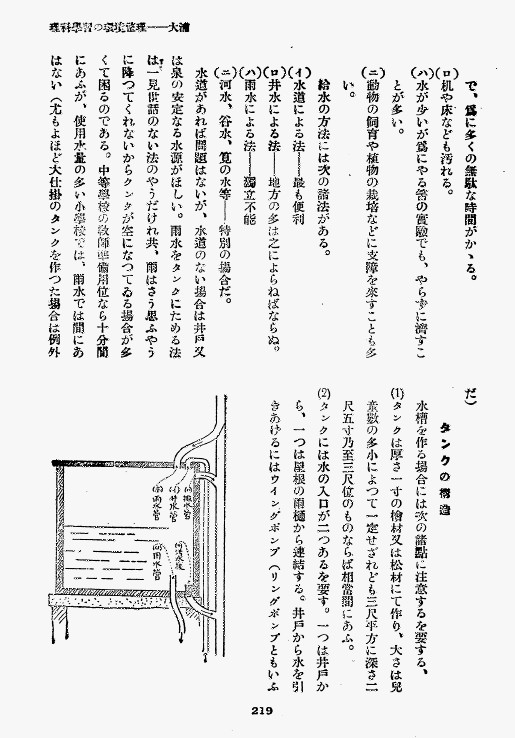 理科學習の環境整理――大浦
で、爲に多くの無駄な時間がかゝる。
(ロ)机や床なども汚れる。
(ハ)水が少いが爲にやる筈の實驗でも、やらずに濟すこ
とが多い。
(ニ)動物の飼育や植物の栽培などに支障を來すことも多
い。
給水の方法には次の諸法がある。
(イ)水道による法――最も便利
(ロ)井水による法――地方の多は之によらねばならぬ。
(ハ)雨水による法――獨立不能
(ニ)河水、谷水、筧の水等――特別の場合だ。
水道があれば問題はないが、水道のない場合は井戸又
は泉の安定なる水源がほしい。雨水をタンクにためる法
は一見世話のない法のやうだけれ共、雨はさう思ふやう
に降つてくれないからタンクが空になつてゐる場合が多
くて困るのである。中等學校の教師準備用位なら十分間
にあふが、使用水量の多い小學校では、雨水では間にあ
はない（尤もよほど大仕掛のタンクを作つた場合は例外
だ）
タンクの構造
水槽を作る場合には次の諸點に注意するを要する、
(1)タンクは厚さ一寸の檜材又は松材にて作り、大さは兒
童數の多小によつて一定せざれども三尺平方に深さ二
尺五寸乃至三尺位のものならば相當間にあふ。
(2)タンクには水の入口が二つあるを要す。一つは井戸か
ら、一つは屋根の雨樋から連結する。井戸から水を引
きあけるにはウイングポンプ（リングポンプともいふ
雨水管
井水管
排水管
用水管
219